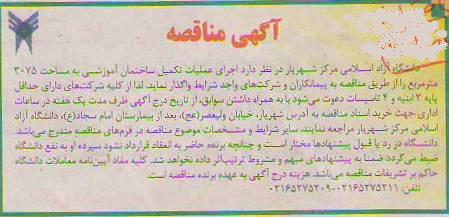 آگهی مناقصه
دانشگاه آزاد اسلامی مرکز شهریار در نظر دارد اجرای عملیات تکمیل ساختمان آموزشی به مساحت ۳۰۷۵
مترمربع را از طریق مناقصه به پیمانکاران و شرکت‌های واجد شرایط واگذار نماید. لذا از کلیه شرکت‌های دارای حداقل
پایه ۳ ابنیه و ۴ تاسیسات دعوت می‌شود با به همراه داشتن سوابق، از تاریخ درج آگهی ظرف مدت یک هفته در ساعات
اداری جهت خرید اسناد مناقصه به آدرس شهریار، خیابان ولیعصر(عج)، بعد از بیمارستان امام سجاد(ع)، دانشگاه آزاد
اسلامی مرکز شهریار مراجعه نمایند، سایر شرایط و مشخصات موضوع مناقصه در فرم‌های مناقصه مندرج می‌باشد.
دانشگاه در رد یا قبول پیشنهادها مختار است و چنانچه برنده حاضر به انعقاد قرارداد نشود سپرده او به نفع دانشگاه
ضبط می‌گردد ضمنا به پیشنهادهای مبهم و مشروط ترتیب‌اثر داده نخواهد شد. کلیه مفاد آیین‌نامه معاملات دانشگاه
حاکم بر تشریفات مناقصه می‌باشد. هزینه درج آگهی به عهده برنده مناقصه است.
تلفن: ۰۲۱۶۵۲۷۵۲۱۱-۰۲۱۶۵۲۷۵۲۰۹